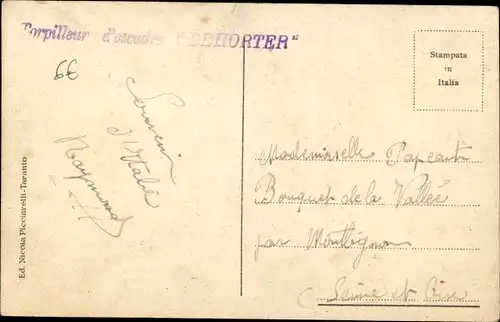 Torpilleur d'escadre "DEHORTER"
6€
Souvenir
d'Italie
Raymond
Ed. Nicola Picciarelli-Taranto
Stampata
in
Italia
Mademoiselle Papeau
Bouquet de la Vallée
par Montlignon
(Seine et Oise